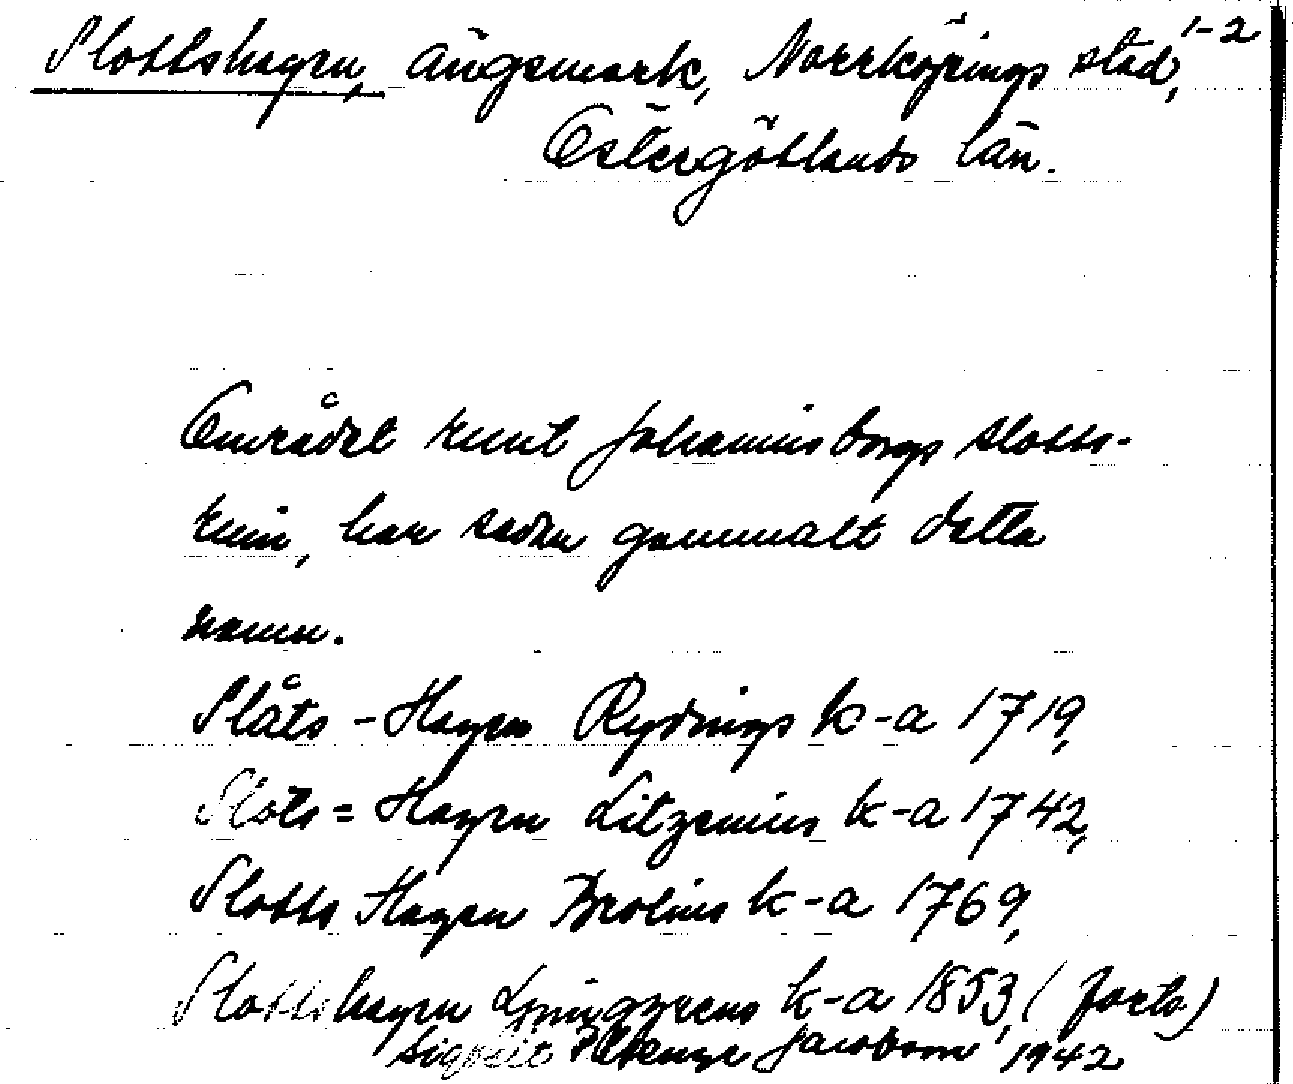 Slottshagen, ängsmark, Norrköpings stad, 1-2
Östergötlands län.
Området runt Johannisborgs slotts-
ruin, har sedan gammalt detta
namn.
Slåts-Hagen Rydings k-a 1719,
Slots=Hagen Litzenius k-a 1742,
Slotts Hagen Brolins k-a 1769,
Slottshagen Ljunggrens k-a 1853, (forts)
Sigbrit Jacobson 1942